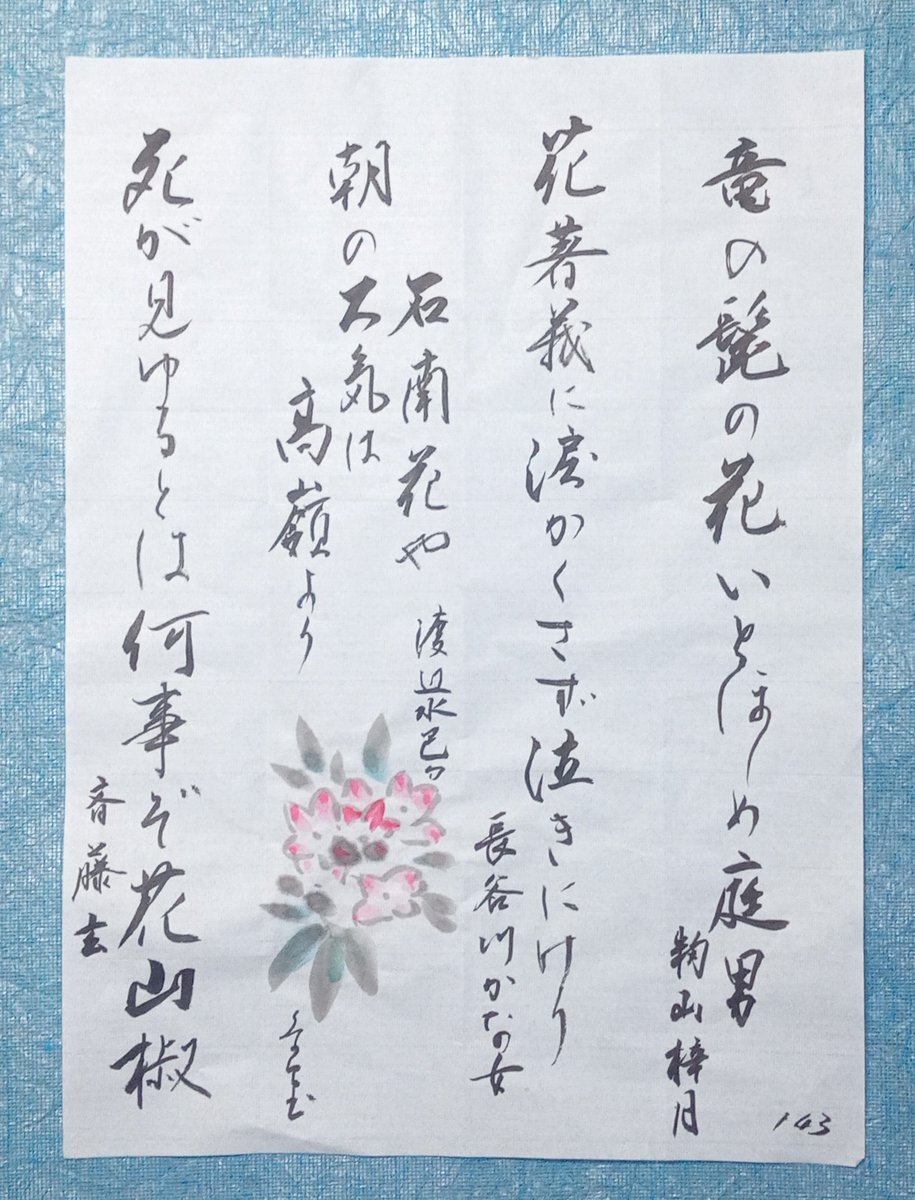 竜の髭の花いとほしめ庭男
籾山梓月
花著莪に涙かくさず泣きにけり
長谷川かな女
石南花や
朝の大気は
高嶺より
渡辺水巴
死が見ゆるとは何事ぞ花山椒
斎藤玄
143